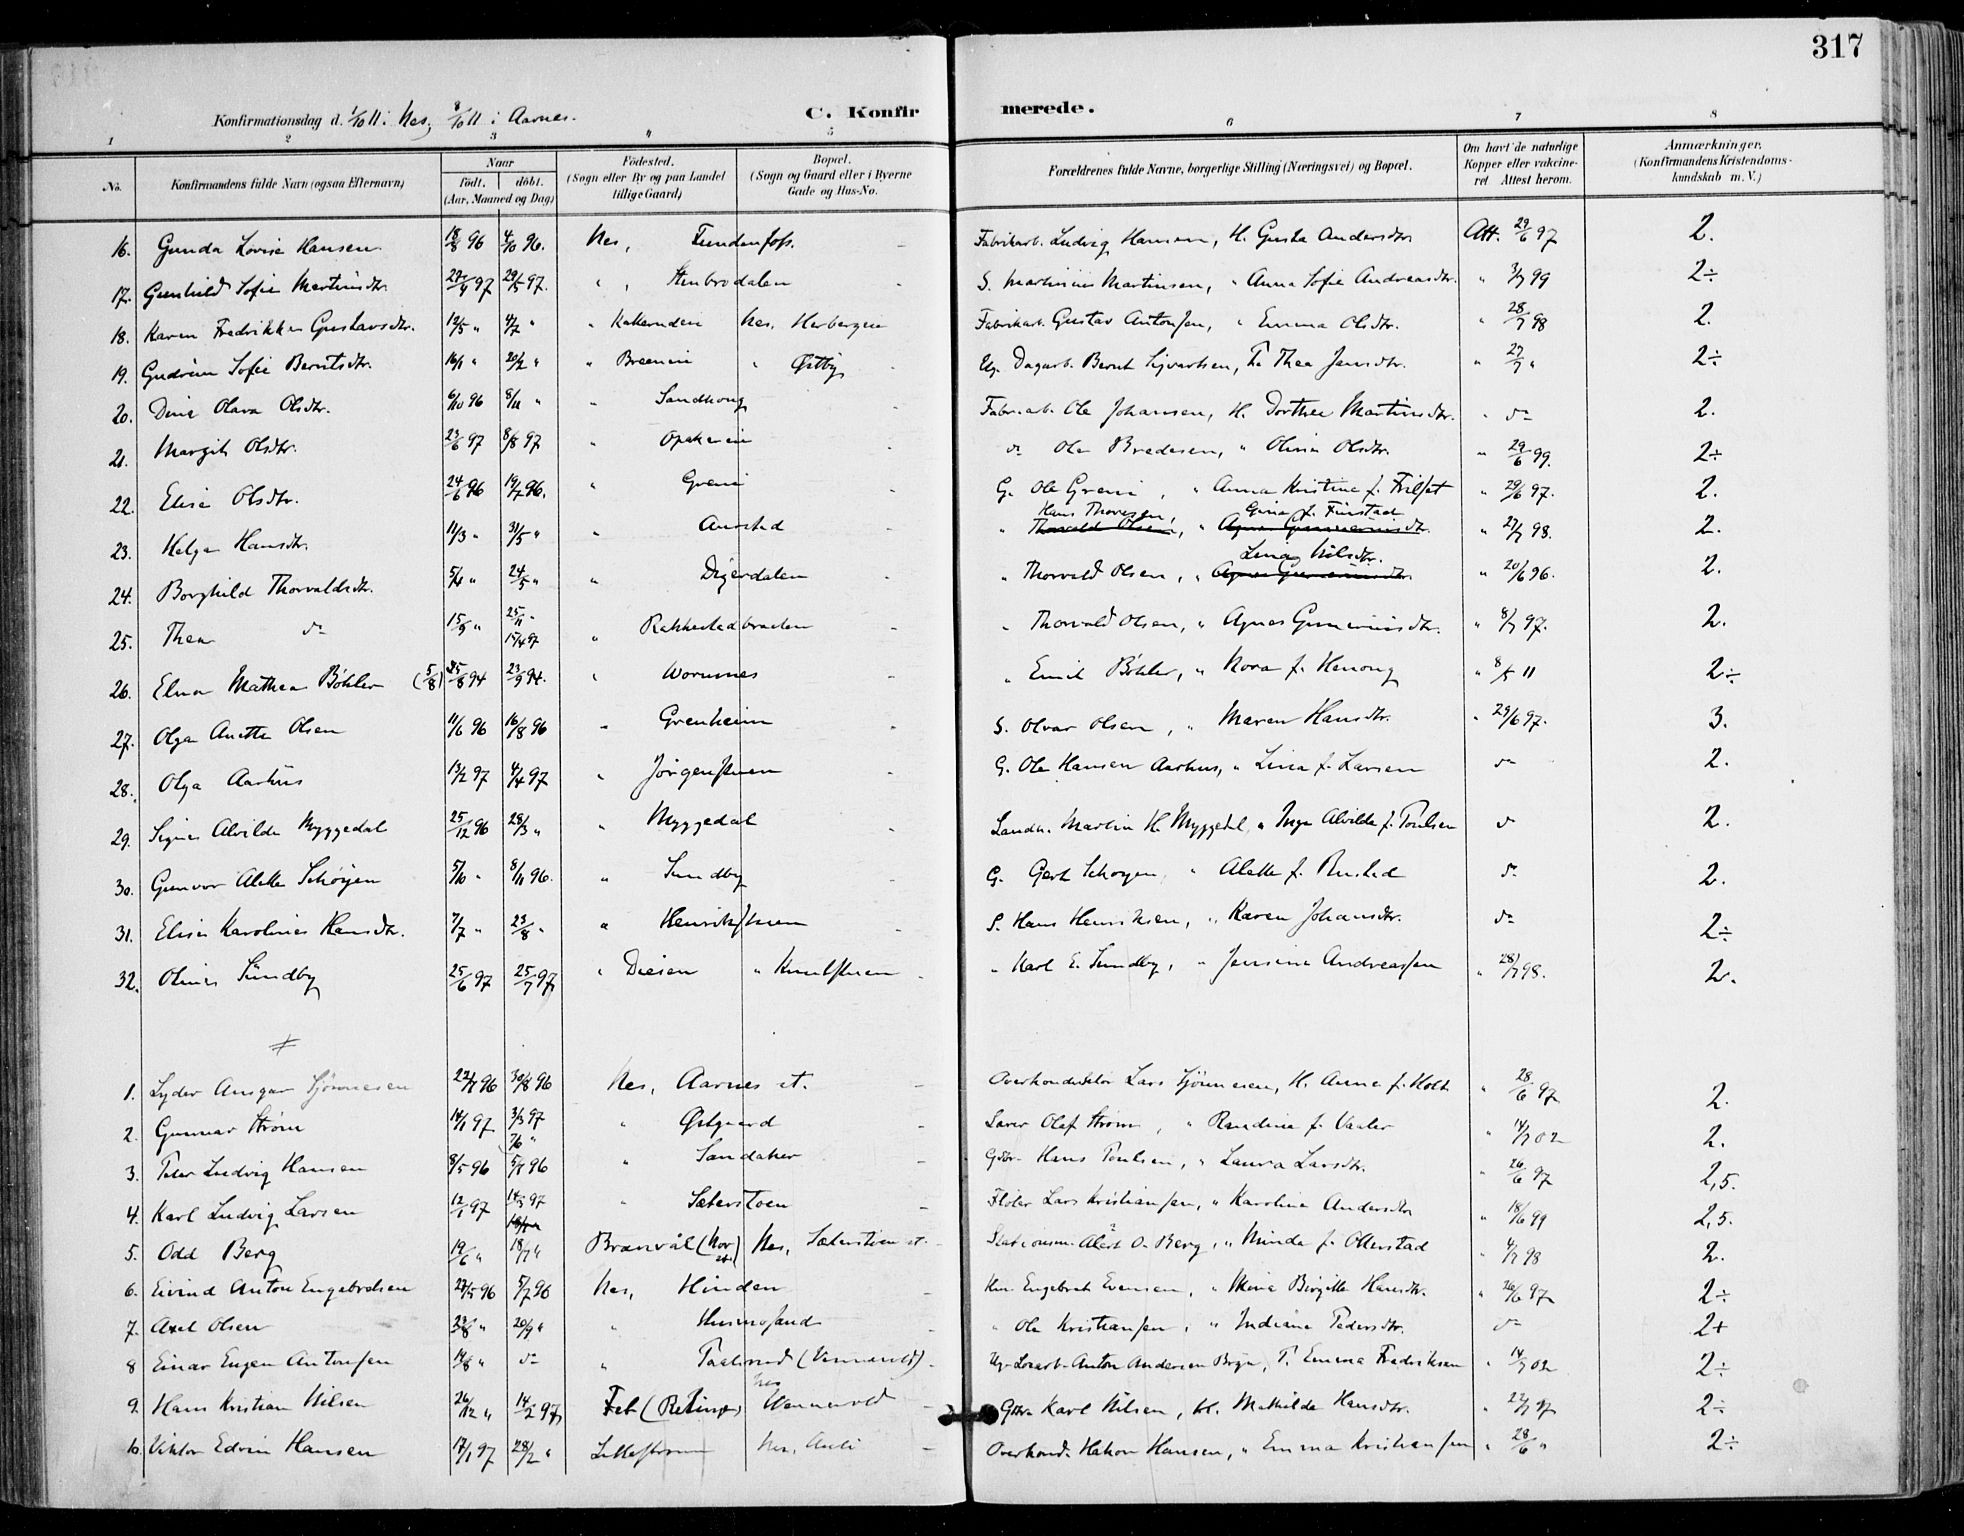 317
Konfirmationsdag d. 1/10 11 i Nes, 8/10 11 i Aarnes.
C. Konfirmerede.
1 2 3 4 5 6 7 8
No. Konfirmandens fulde Navn (ogsaa Efternavn) Naar født. døbt. (Aar, Maaned og Dag) Fødested. (Sogn eller By og paa Landet tillige Gaard) Bopæl. (Sogn og Gaard eller i Byerne Gade og Hus-No. Forældrenes fulde Navne, borgerlige Stilling (Næringsvei) og Bopæl. Om havt de naturlige Kopper eller vakcineret Attest herom. Anmærkninger. (Konfirmandens Kristendomskundskab m. V.)
16. Gunda Lovise Hansen 18/8 96 4/10 96. Nes, Fundenfoss. Fabrikarb. Ludvig Hansen, H. Gusta Andersdtr. Att. 29/6 97 2.
17. Gunhild Sofie Martinsdtr. 27/4 97 29/5 97. " , Stenbrodalen S. Martinius Martinsen, " Anna Sofie Andreasdtr. " 3/7 99 2÷
18. Karen Fredrikke Gustavsdtr. 12/5 " 4/7 " " Kakernden Nes, Herbergen Fabrikarb. Gustav Antonsen, " Emma Olsdtr. " 28/7 98 2.
19. Gudrun Sofie Berntsdtr. 16/1 " 20/2 " " Breenni " Østby Ug. Dagarb. Bernt Sigvartsen, Fr. Thea Jensdtr. " 27/7 " 2÷
20. Dina Olava Olsdtr. 6/10 96 8/11 " " Sandhong Fabrikarb. Ole Johansen, H. Dorthea Martinsdtr. " do 2.
21. Margit Olsdtr. 23/6 97 8/8 97 " Opakerni do Ole Bredesen, " Olivia Olsdtr. " 29/6 99. 2÷
22. Elise Olsdtr. 24/6 96 19/7 96. " Greni G. Ole Greni, " Anna Kristine f. Frilset " 29/6 97. 2.
23. Helga Hansdtr. 11/3 " 31/5 " " Aarstad " Hans Thoresen, Gina f. Finstad " 27/7 98. 2.
24. Borghild Thorvaldsdtr. 5/4 " 24/5 " " Digerdalen " Thorvald Olsen, " Lina Nilsdtr. " 20/6 96. 2.
25. Thea do 15/9 " 25/11 " 15/4 97 " Rakkestadbraaten " Thorvald Olsen, " Agnes Guneriusdtr. " 8/7 97. 2.
26. Elna Mathea Böhler (5/8) 25/8 94 23/9 94. " Wormnes " Emil Böhler, " Nora f. Henong " 8/5 11 2÷
27. Olga Anette Olsen 11/6 96 16/8 96 " Grenheim S. Olvar Olsen, " Maren Hansdtr. " 29/6 97. 3.
28. Olga Aarhus 13/2 97 4/4 97 " Jörgenstuen G. Ole Hansen Aarhus, " Lina f. Larsen do 2.
29. Signe Alvilde Myggedal 25/12 96 28/3 " " Myggedal Landh. Martin H. Myggedal, " Inga Alvilde f. Poulsen do 2.
30. Gunvor Alette Schøyen 5/10 " 8/11 96. " Sundby G. Gert Schøyen, " Alette f. Rustad do 2.
31. Elise Karoline Hansdtr. 7/7 " 23/8 " " Henrikstuen S. Hans Henriksen, " Karen Johansdtr. do 2÷
32. Oline Sundby 25/6 97 25/7 97 " Diesen " Knutstuen " Karl E. Sundby, " Jensine Andreassen " 28/7 98. 2.
1. Lyder Ansgar Tjönnesen 22/7 96 30/8 96 Nes, Aarnes st. Overkonduktör Lars Tjönnesen, H. Anna f. Holt " 28/6 97 2.
2. Gunnar Ström 14/1 97 3/3 97 7/6 " " Østgaard Lærer Olaf Ström, " Randine f. Vaaler " 14/7 02 2.
3. Peter Ludvig Hansen 8/5 96 5/7 96 " Sandaker Gdbr. Hans Poulsen, " Laura Larsdtr. " 26/6 97 2,5.
4. Karl Ludvig Larsen 12/1 97 14/3 97 " Sæterstøen Fløter Lars Kristiansen, " Karoline Andersdtr " 18/6 99 2,5.
5. Odd Berg 19/6 " 18/7 " Branvål (Nor st) Nes, Sæterstøen st. Stationsm. Albert O. Berg, " Minda f. Ollerstad " 4/7 98 2.
6. Eivind Anton Engebretsen 27/5 96 5/7 96 Nes, Hinden Hm. Engebret Evensen, " Mina Birgitte Hansdtr. " 26/6 97 2÷
7. Axel Olsen 23/8 " 20/9 " " Husmosand " Ole Kristiansen, " Indiane Pedersdtr. do 2+
8 Einar Eugen Antonsen 14/8 " do " Taalerud (Vennevold) Ug. Losarb. Anton Andersen Bryn, P. Emma Fredriksen " 14/7 02 2÷
9. Hans Kristian Nilsen 26/12 " 14/2 97 Fet (Relingen) Nes Vennevold Gdbr. Karl Nilsen, H. Mathilde Hansdtr. " 22/7 97 2÷
10. Viktor Edvin Hansen 17/1 97 28/2 " Lillestrøm Nes, Auli Overkond. Hakon Hansen, " Emma Kristiansen " 28/6 " 2÷